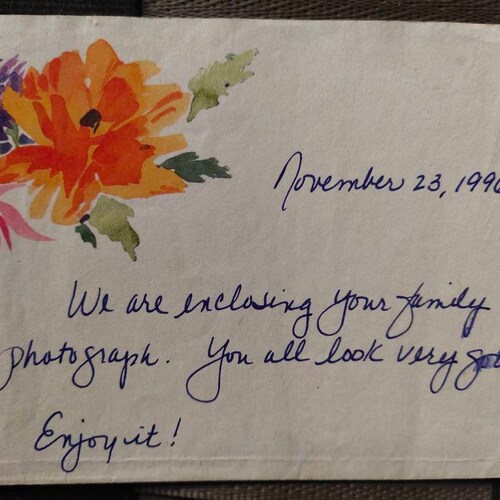 November 23, 1996
We are enclosing your family
photograph. You all look very
Enjoy it!